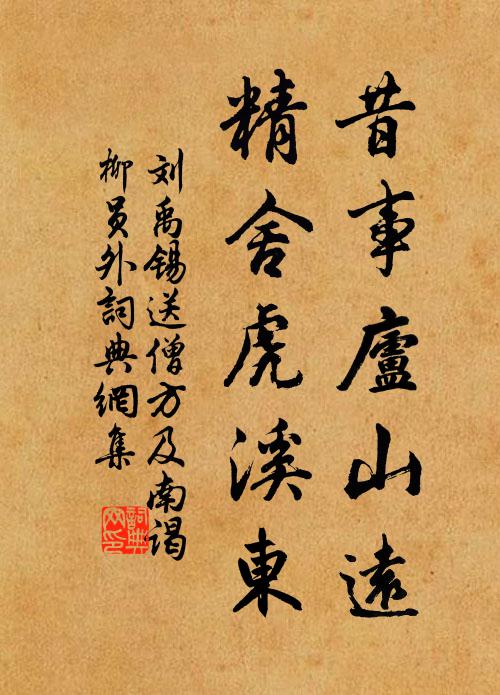 昔事廬山遠
精舍虎溪東
刘禹锡送僧方及南谒
柳员外詞典網集
詞典